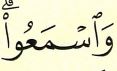 وَٱسْمَعُوا۟ۗ